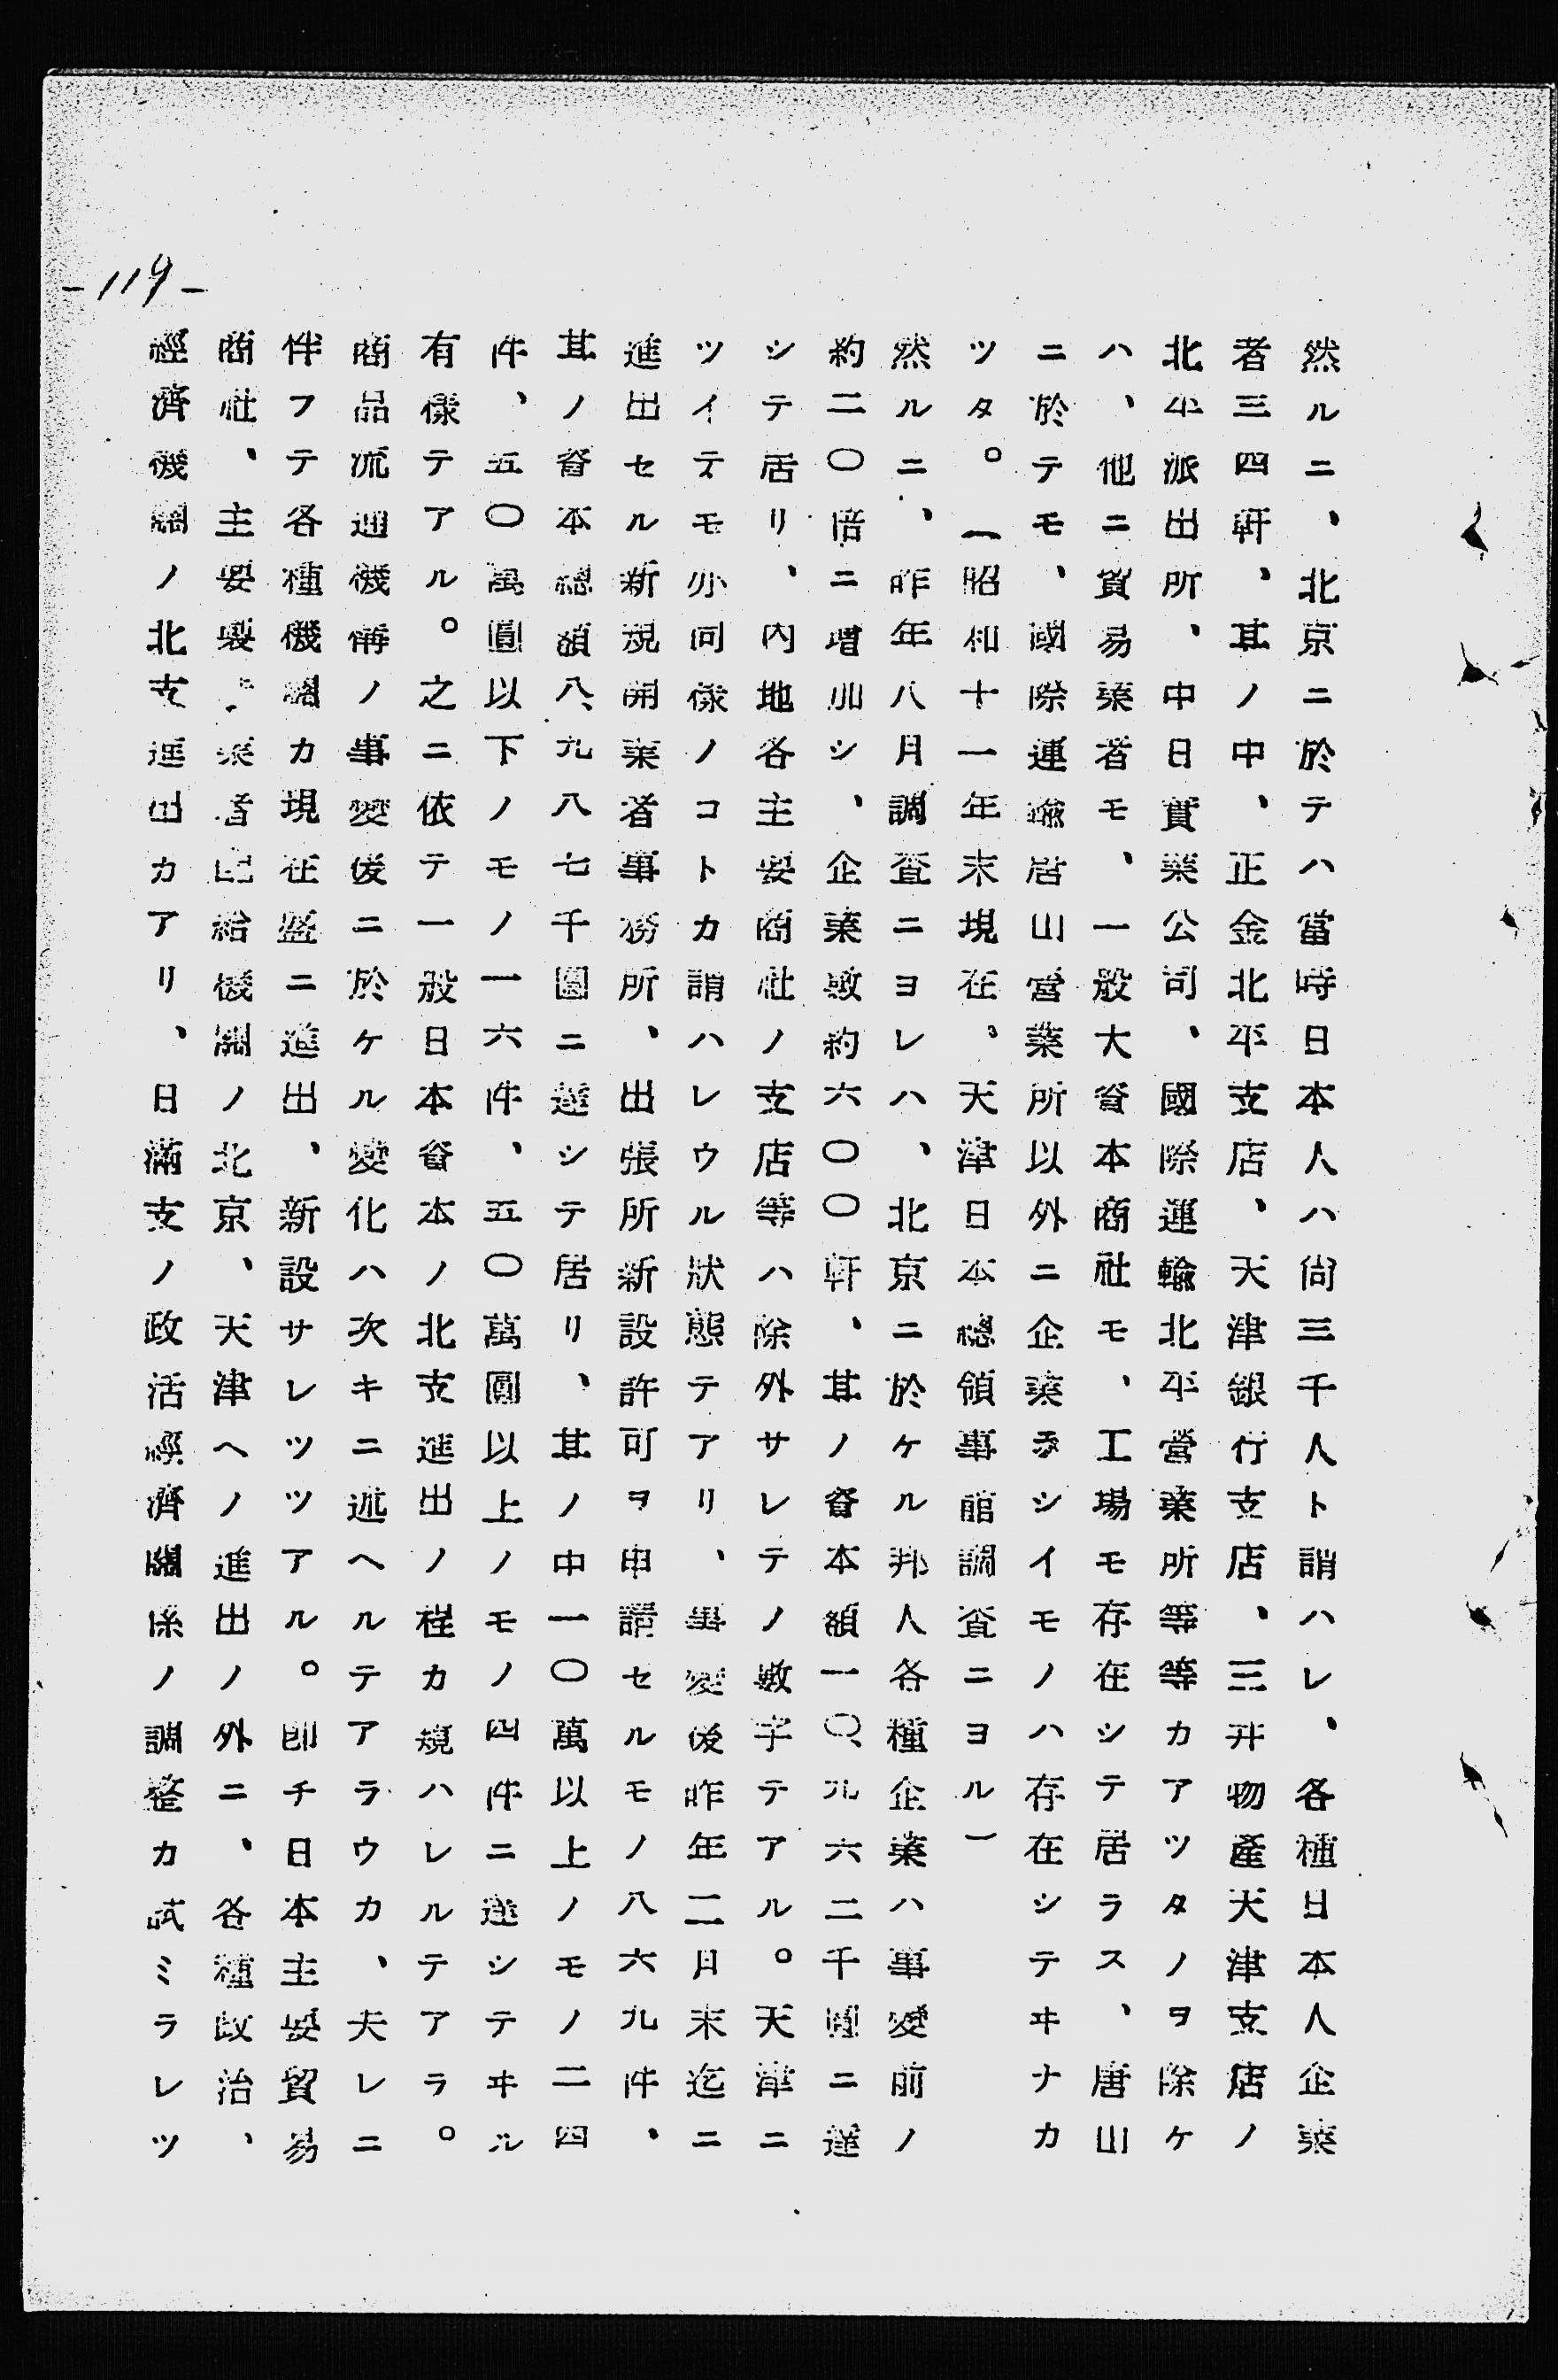 -119-
然ルニ、北京ニ於テハ當時日本人ハ尙三千人ト謂ハレ、各種日本人企業
者三四軒、其ノ中、正金北平支店、天津銀行支店、三井物產天津支店ノ
北平派出所、中日實業公司、國際運輸北平營業所等等カアツタノヲ除ケ
ハ、他ニ貿易業者モ、一般大資本商社モ、工場モ存在シテ居ラス、唐山
ニ於テモ、國際運輸唐山營業所以外ニ企業ラシイモノハ存在シテヰナカ
ツタ。(昭和十一年末現在、天津日本總領事館調査ニヨル)
然ルニ、昨年八月調査ニヨレハ、北京ニ於ケル邦人各種企業ハ事變前ノ
約二〇倍ニ增加シ、企業數約六〇〇軒、其ノ資本額一〇、九六二千圓ニ達
シテ居リ、內地各主要商社ノ支店等ハ除外サレテノ數字テアル。天津ニ
ツイテモ亦同樣ノコトカ謂ハレウル狀態テアリ、事變後昨年二月末迄ニ
進出セル新規開業者事務所、出張所新設許可ヲ申請セルモノ八六九件、
其ノ資本總額八、九八七千圓ニ達シテ居リ、其ノ中一〇萬以上ノモノ二四
件、五〇萬圓以下ノモノ一六件、五〇萬圓以上ノモノ四件ニ達シテヰル
有樣テアル。之ニ依テ一般日本資本ノ北支進出ノ程カ窺ハレルテアラ。
商品流通機構ノ事變後ニ於ケル變化ハ次キニ述ヘルテアラウカ、夫レニ
伴フテ各種機關カ現在盛ニ進出、新設サレツツアル。卽チ日本主要貿易
商社、主要製業者配給機關ノ北京、天津ヘノ進出ノ外ニ、各種政治、
經濟機關ノ北支進出カアリ、日滿支ノ政活經濟關係ノ調整カ試ミラレツ